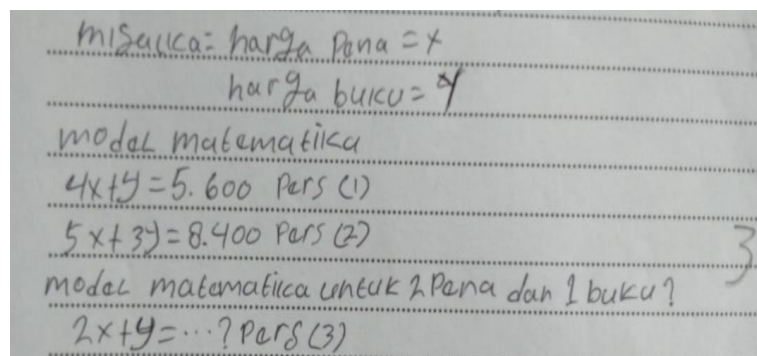 misalka = harga Pena = x
harga buku = y
model matematika
4x+y = 5.600 Pers (1)
5x+3y = 8.400 Pers (2)
3
model matematika untuk 2 Pena dan 1 buku?
2x+y = ...? Pers (3)